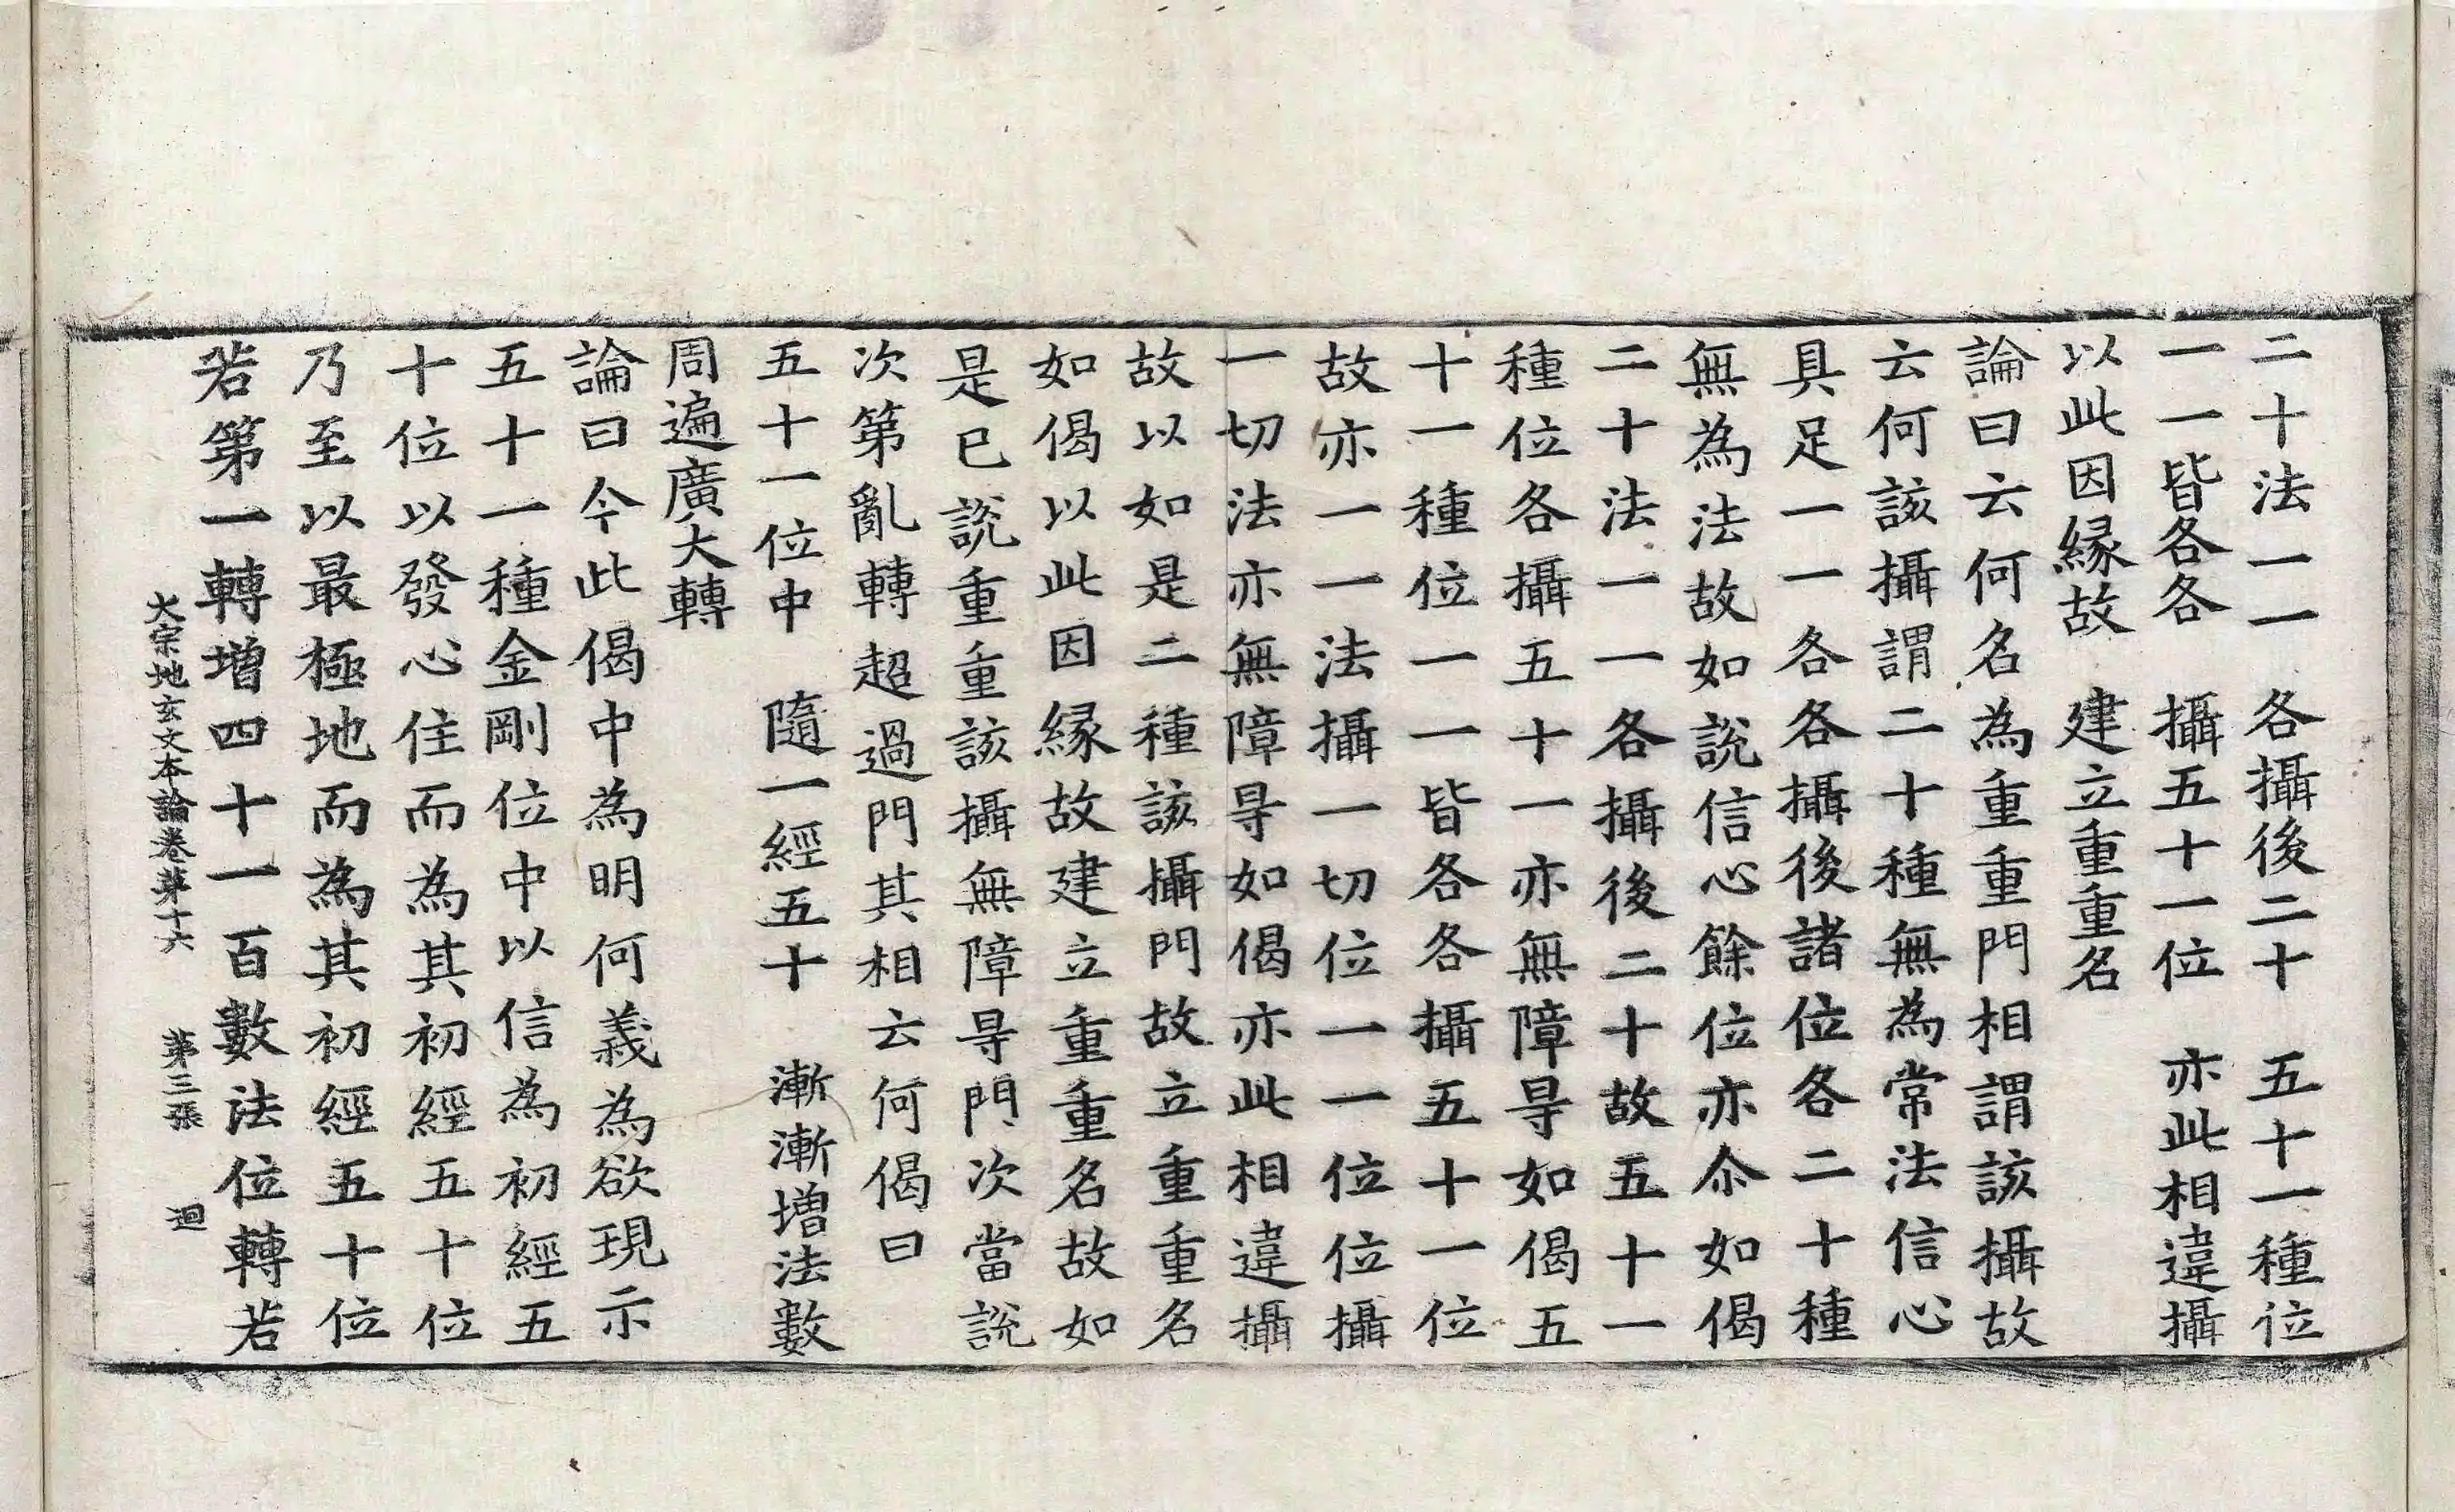 二十法一一　各攝後二十　五十一種位
一一皆各各　攝五十一位　亦此相違攝
以此因縁故　建立重重名
論曰云何名為重重門相謂該攝故
云何該攝謂二十種無為常法信心
具足一一各各攝後諸位各二十種
無為法故如說信心餘位亦尒如偈
二十法一一各攝後二十故五十一
種位各攝五十一亦無障㝵如偈五
十一種位一一皆各各攝五十一位
故亦一一法攝一切位一一位位攝
一切法亦無障㝵如偈亦此相違攝
故以如是二種該攝門故立重重名
如偈以此因縁故建立重重名故如
是已說重重該攝無障㝵門次當說
次第亂轉超過門其相云何偈曰
五十一位中　隨一經五十　漸漸增法數
周遍廣大轉
論曰今此偈中為明何義為欲現示
五十一種金剛位中以信為初經五
十位以發心住而為其初經五十位
乃至以最極地而為其初經五十位
若第一轉增四十一百數法位轉若
大宗地玄文本論卷第十六　第三張　迴